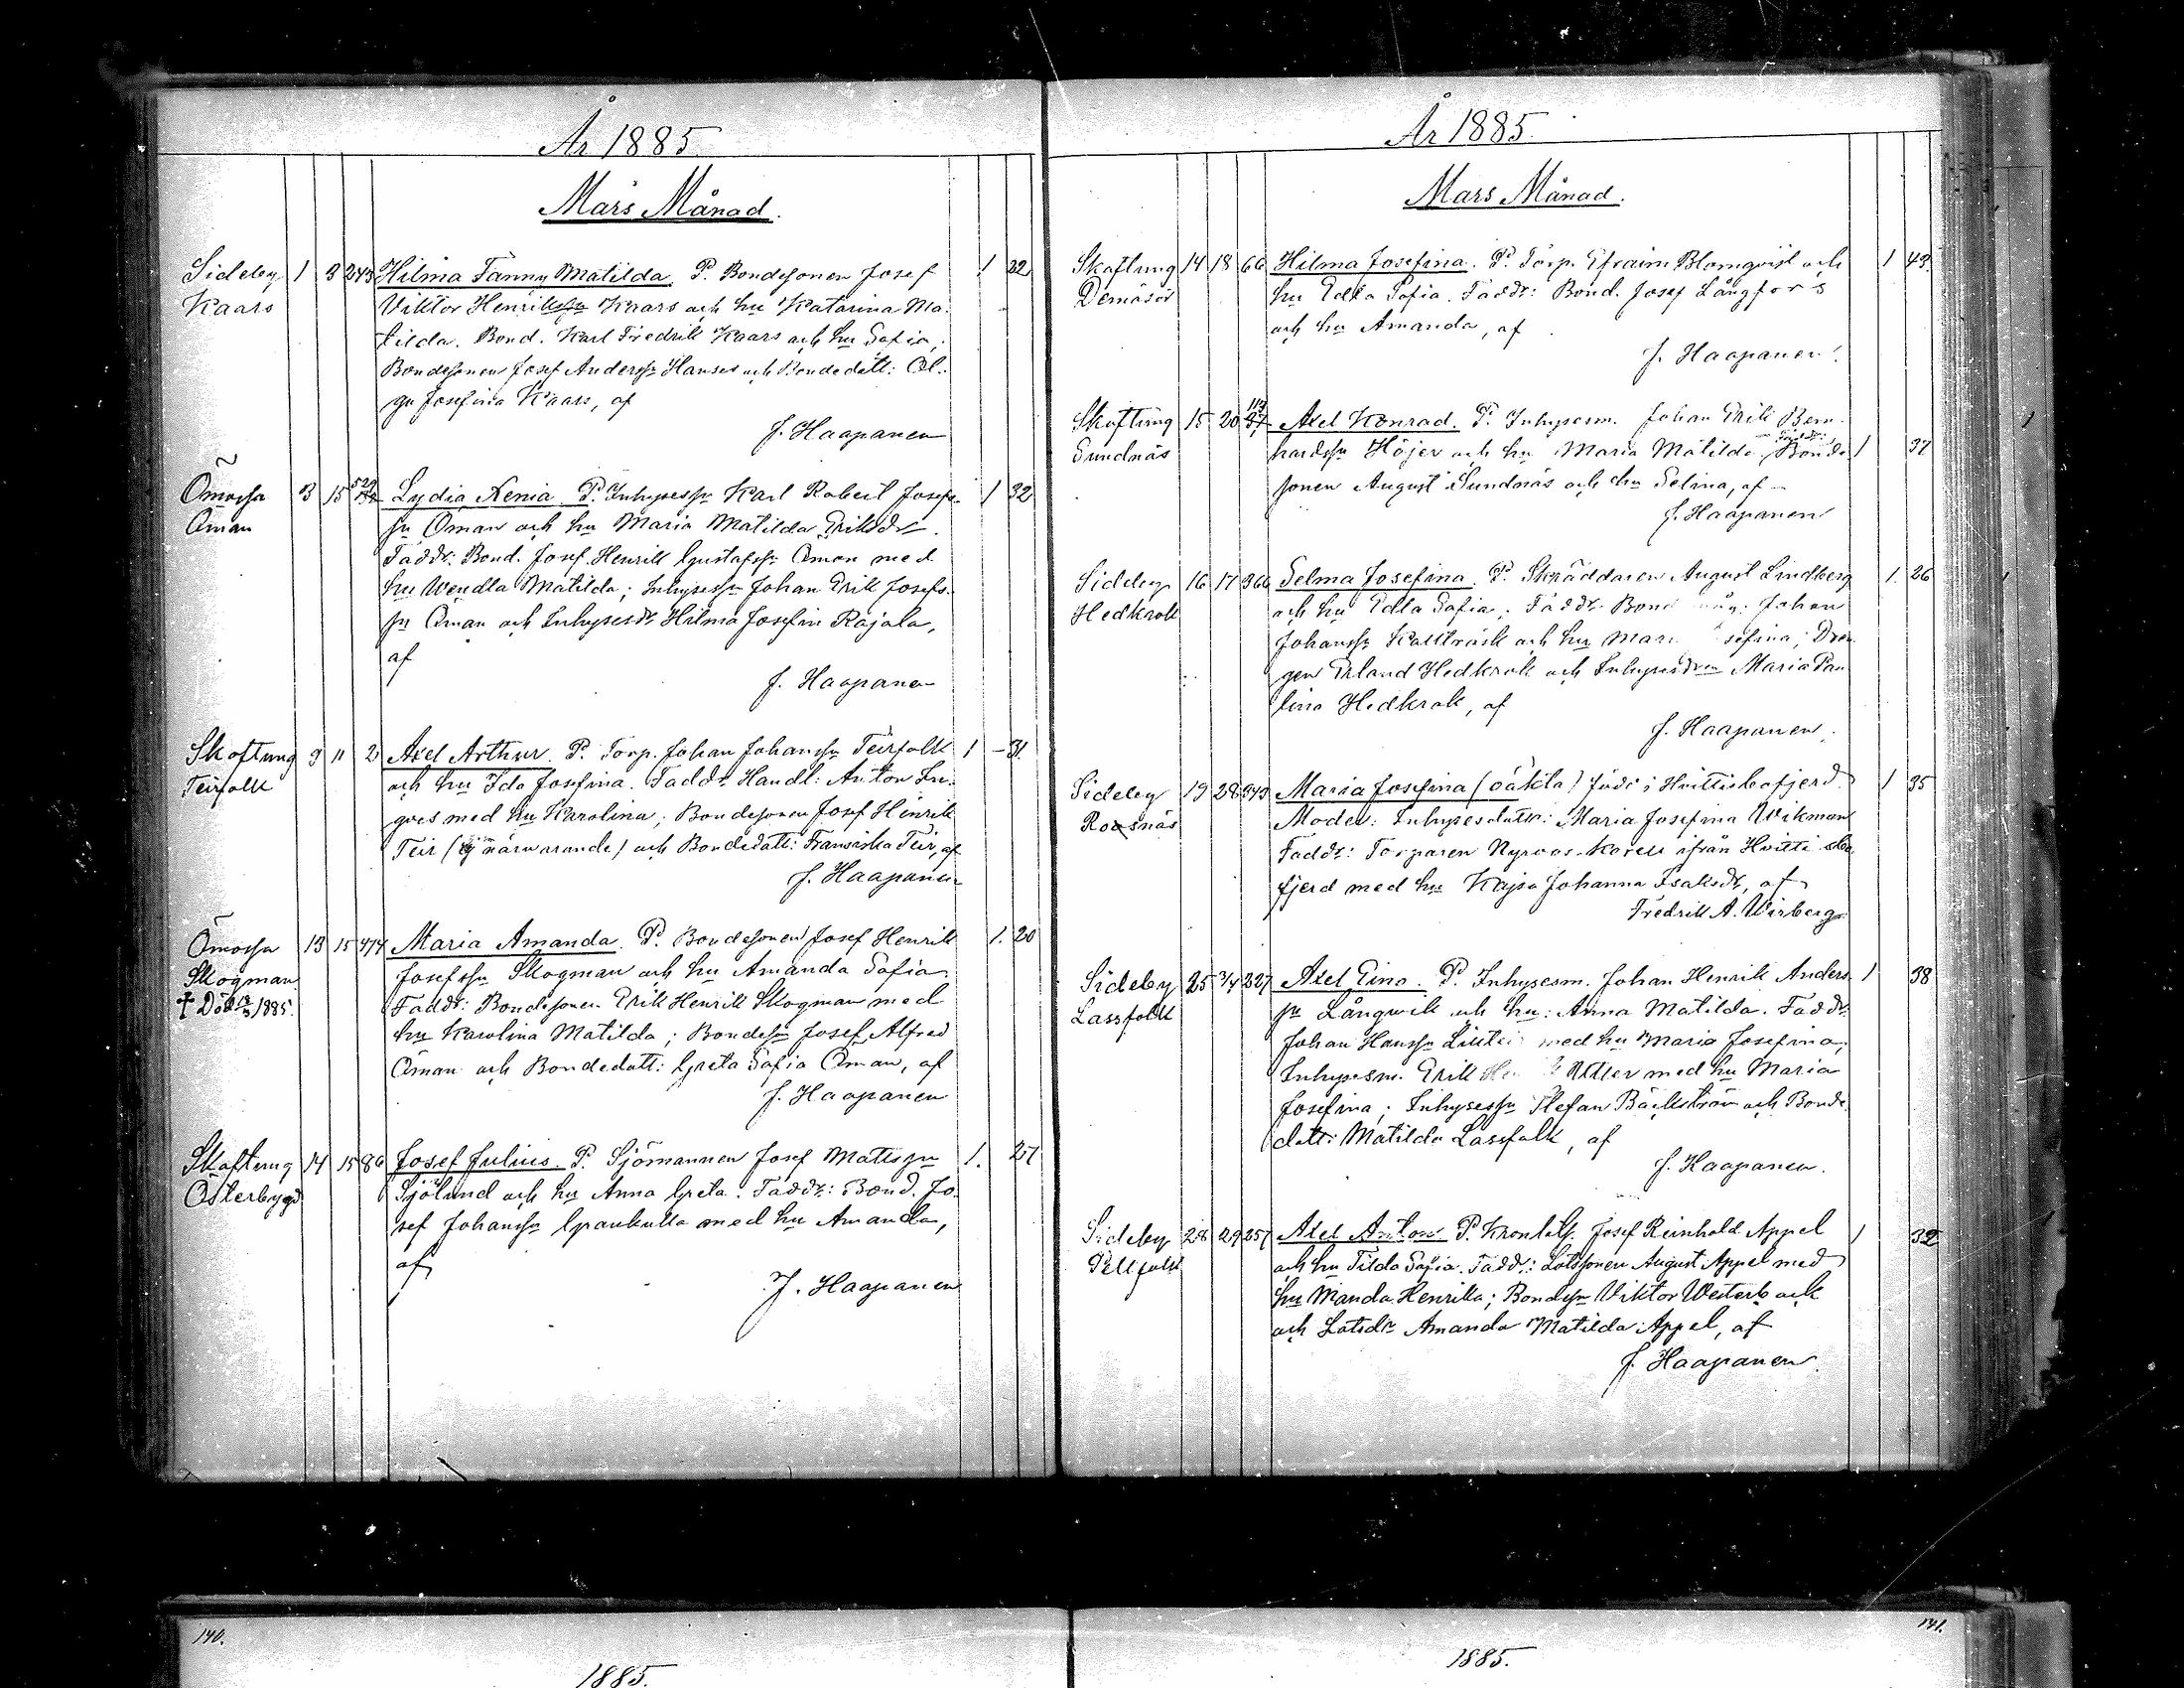 År 1885.
Mars Månad.
Sideby 1 3 243 Hilma Fanny Matilda. P. Bondesonen Josef 1 22
Kaars Viktor Henrikssn Kaars och hu Katarina Ma-
tilda. Bond. Karl Fredrik Kaars och hu Sofia;
Bondesonen Josef Anderssn Hanses och Bondedött: Ol-
ga Josefina Kaars, af
J. Haapanen
Ömossa 3 15 529 Lydia Xenia. P. Inhysessn Karl Robert Josefs- 1 32
Öman sn Öman och hu Maria Matilda Eriksdr.
Faddr: Bond. Josef Henrik Gustafssn Öman med
hu Wendla Matilda; Inhysessn Johan Erik Josefs-
sn Öman och Inhysesdr Hilma Josefin Rajala,
af
J. Haapanen
Skaftung 9 11 2 Axel Arthur. P. Torp. Johan Johanssn Teirfolk 1 - 31
Teirfolk och hu Ida Josefina. Faddr. Handl: Anton In-
gves med hu Karolina; Bondesonen Josef Henrik
Teir (ej närwarande) och Bondedött: Fransiska Teir, af
J. Haapanen
Ömossa 13 15 474 Maria Amanda. P. Bondesonen Josef Henrik 1. 20
Skogman Josefssn Skogman och hu Amanda Sofia.
† Död 1885. Faddr: Bondesonen Erik Henrik Skogman med
hu Karolina Matilda; Bondesn Josef Alfred
Öman och Bondedött: Greta Sofia Öman, af
J. Haapanen
Skaftung 14 15 86 Josef Julius. P. Sjömannen Josef Mattssn 1. 27
Österbygd Sjölund och hu Anna Greta. Faddr: Bond. Jo-
sef Johanssn Grankulla med hu Amanda,
af
J. Haapanen
År 1885.
Mars Månad.
Skaftung 14 18 66 Hilma Josefina. P. Torp. Efraim Blomqvist och 1 43
Demäsör hu Edla Sofia. Faddr: Bond. Josef Långfors
och hu Amanda, af
J. Haapanen.
Skaftung 15 20 113 Axel Konrad. P. Inhysesm. Johan Erik Bern-
Sundnäs hardssn Höjer och hu Maria Matilda. Faddr: Bonde- 1 37
sonen August Sundnäs och hu Selina, af
J. Haapanen
Sideby 16 17 366 Selma Josefina. P. Skräddaren August Lindberg 1. 26
Hedkrok och hu Edla Sofia. Faddr. Bond Johan
Johanssn Kallträsk och hu Mari sefina; Drän-
gen Erland Hedkrok och Inhysesdrn Maria Pau-
lina Hedkrok, af
J. Haapanen.
Sideby 19 28 343 Maria Josefina (oäkta) född i Hvittisbofjerd. 1 35
Rosnäs Moder: Inhysesdottr: Maria Josefina Wikman
Faddr: Torparen Nyroos-Korell ifrån Hvittisbo-
fjerd med hu Kajsa Johanna Isaksdr, af
Fredrik A. Wirberg
Sideby 25 3/4 227 Axel Eino. P. Inhysesm. Johan Henrik Anders- 1 38
Lassfolk sn Långwik och hu: Anna Matilda. Faddr:
Johan Hanssn med hu Maria Josefina;
Inhysesm. Erik med hu Maria
Josefina; Inhysessn Stefan Bäckström och Bonde-
dött: Matilda Lassfolk, af
J. Haapanen.
Sideby 28 29 257 Axel Anton P. Kronlots. Josef Reinhold Appel 1 32
Pellfolk och hu Tilda Sofia. Faddr.: Lotssonen August Appel med
hu Manda Henrika; Bondesn Viktor Westerback
och Lotsdr Amanda Matilda Appel, af
J. Haapanen.
140.
1885.
141.
1885.